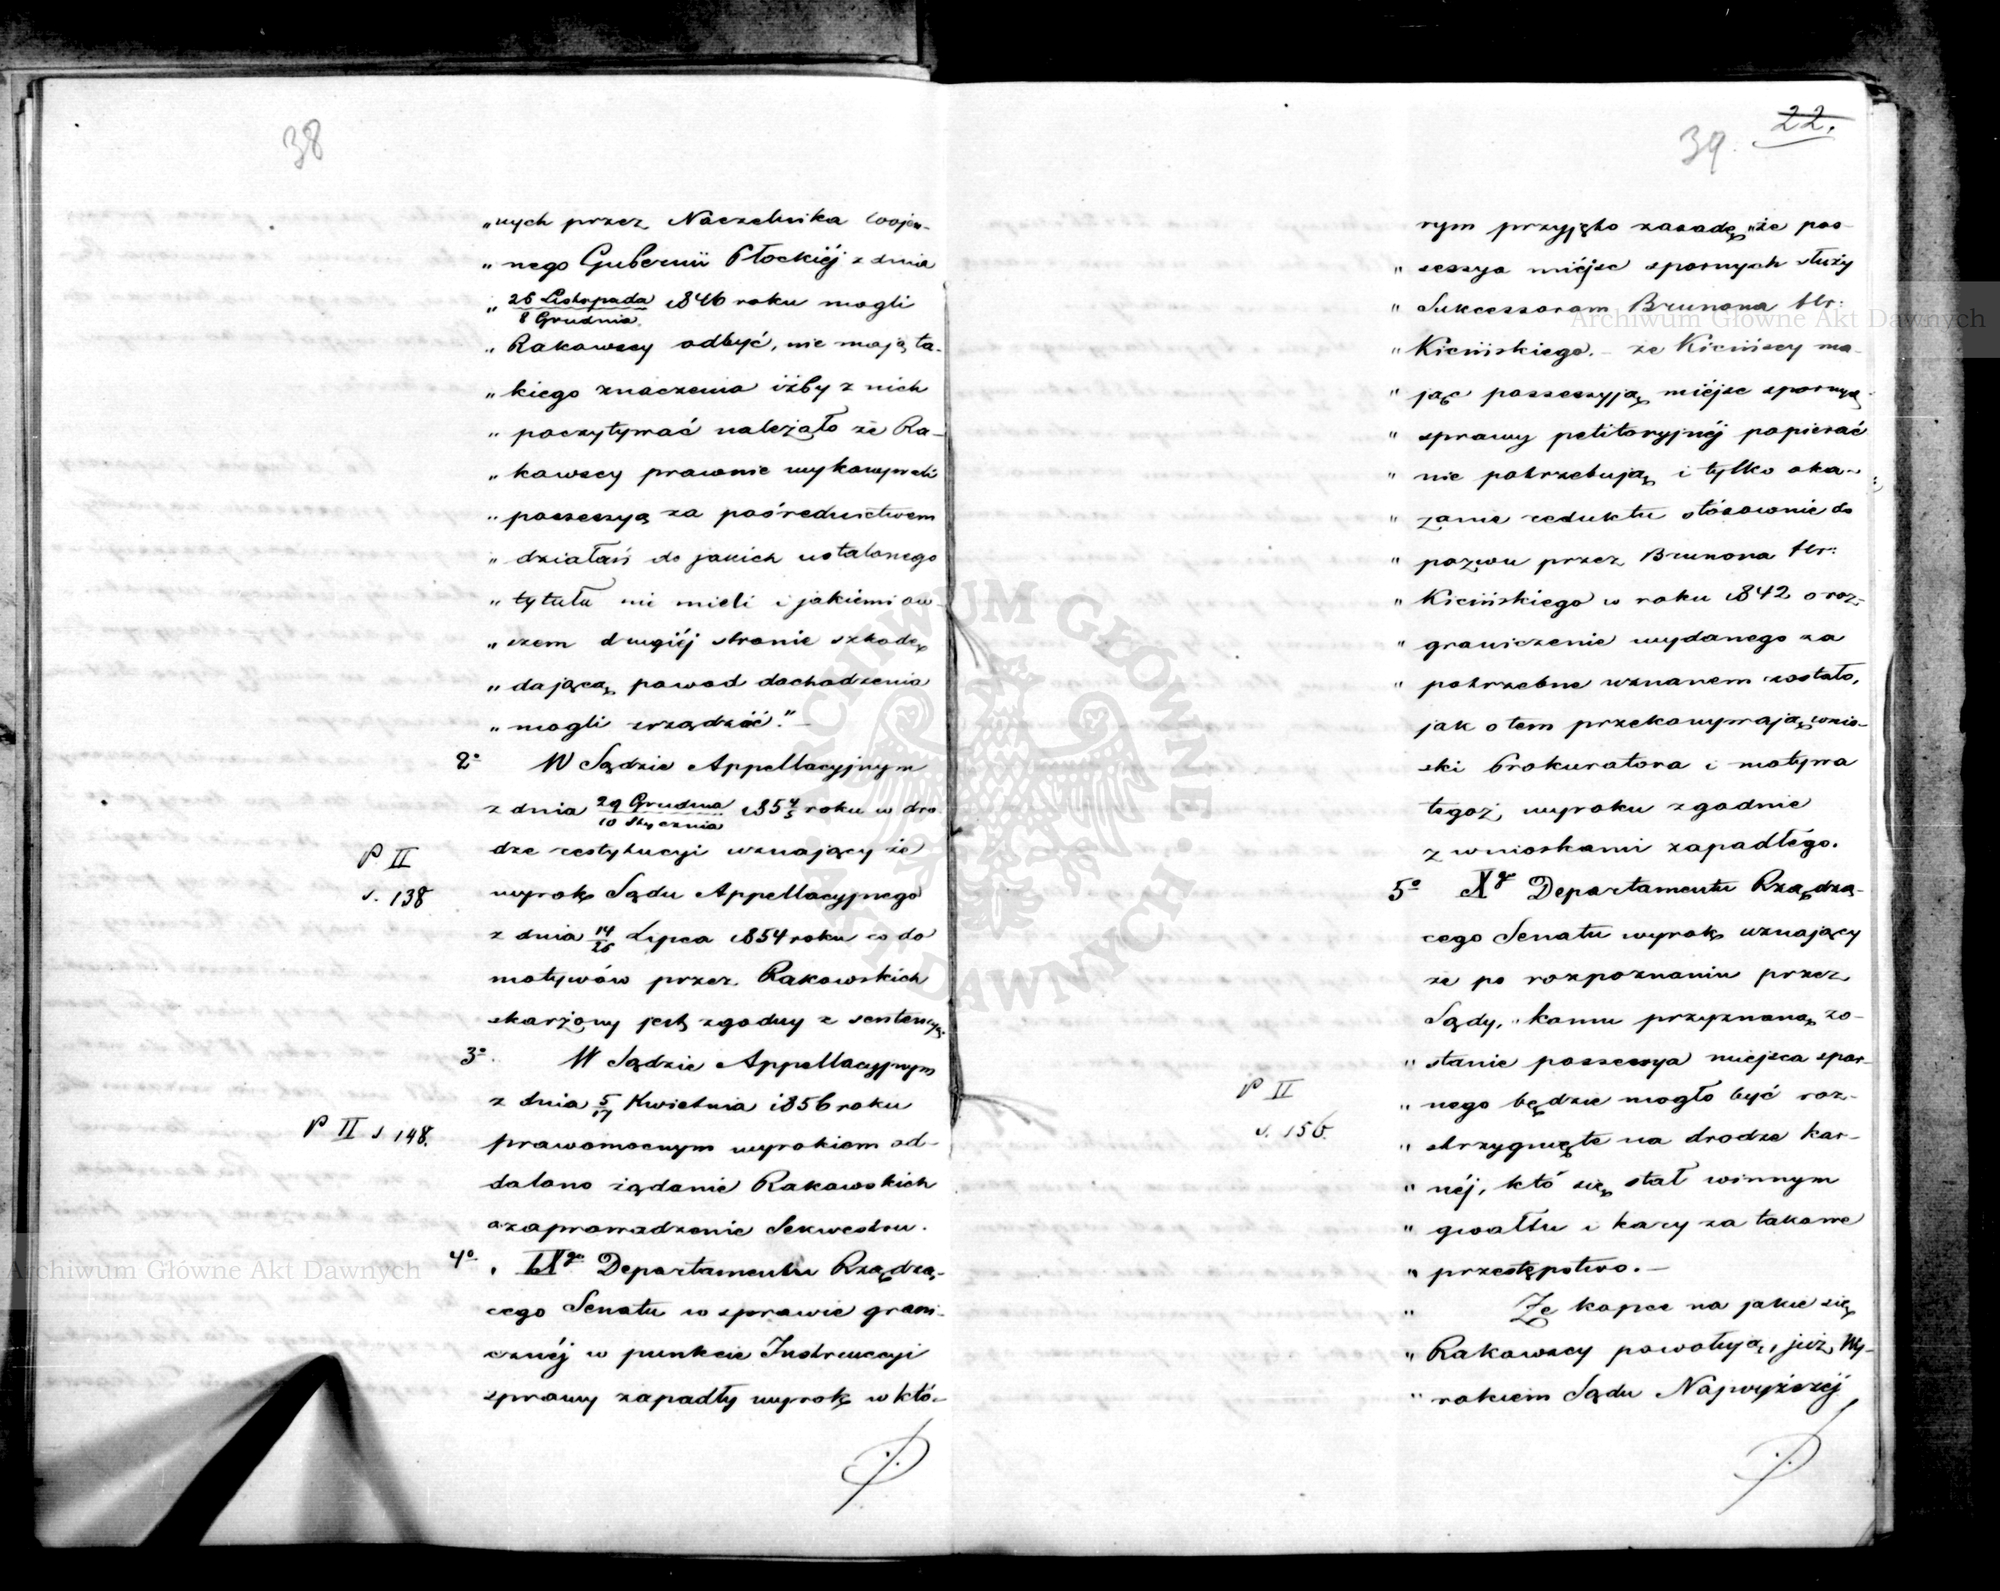 38
„nych przez Naczelnika Wojen-
„nego Gubernii Płockiéj z dnia
„ 26 Listopada / 8 Grudnia 1846 roku mogli
„ Rakowscy odbyć, nie mają ta-
„ kiego znaczenia iżby z nich
„ poczytywać należało że Ra-
„ kowscy prawnie wykonywali
„ possessyą za pośrednictwem
„ działań do jakich ustalonego
„ tytułu nie mieli i jakiemi ow-
„ szem drugiéj stronie szkodę
„ dającą powod dochodzenia
„ mogli zrządzić."–
2° W Sądzie Appellacyjnym
z dnia 29 Grudnia / 10 Stycznia 185 4/5 roku w dro-
P. II
s. 138
dze restytucyi uznający że
wyrok Sądu Appellacyjnego
z dnia 14/26 Lipca 1854 roku co do
motywów przez Rakowskich
skarżony jest zgodny z sentencyą
3°. W Sądzie Appellacyjnym
z dnia 5/17 Kwietnia 1856 roku
P II s 148.
prawomocnym wyrokiem od-
dalono żądanie Rakowskich
o zaprowadzenie Sekwestru.
4° . IXgo Departamentu Rządzą-
cego Senatu w sprawie grani-
cznéj w punkcie Instrukcyi
sprawy zapadły wyrok w któ-
39. 22.
rym przyjęto zasadę „że pos-
„ sessya miéjsc spornych służy
„ Sukcessorom Brunona Hr:
„ Kicińskiego.– że Kicińscy ma-
„ jąc possessyją miéjsc spornych
„ sprawy petitoryjnéj popierać
„ nie potrzebują i tylko oka-
„ zanie reduktu stósownie do
„ pozwu przez Brunona Hr:
„ Kicińskiego w roku 1842 o roz-
„ graniczenie wydanego za
„ potrzebne uznanem zostało,
jak o tem przekonywają wnio-
ski Prokuratora i motywa
tegoż wyroku zgodnie
z wnioskami zapadłego.
5° Xgo Departamentu Rządzą-
cego Senatu wyrok uznający
że po rozpoznaniu przez
Sądy, „komu przyznaną zo-
„ stanie possessya miejsca spor-
P II
s. 156.
„ nego będzie mogło być roz-
„ strzygnięte na drodze kar-
„ néj, któ się stał winnym
„ gwałtu i kary za takowe
„ przestępstwo.–
„ Że kopce na jakie się
„ Rakowscy powołują, już Wy-
„ rokiem Sądu Najwyższéj
Archiwum Główne Akt Dawnych
Archiwum Główne Akt Dawnych
ARCHIWUM GŁÓWNE AKT DAWNYCH